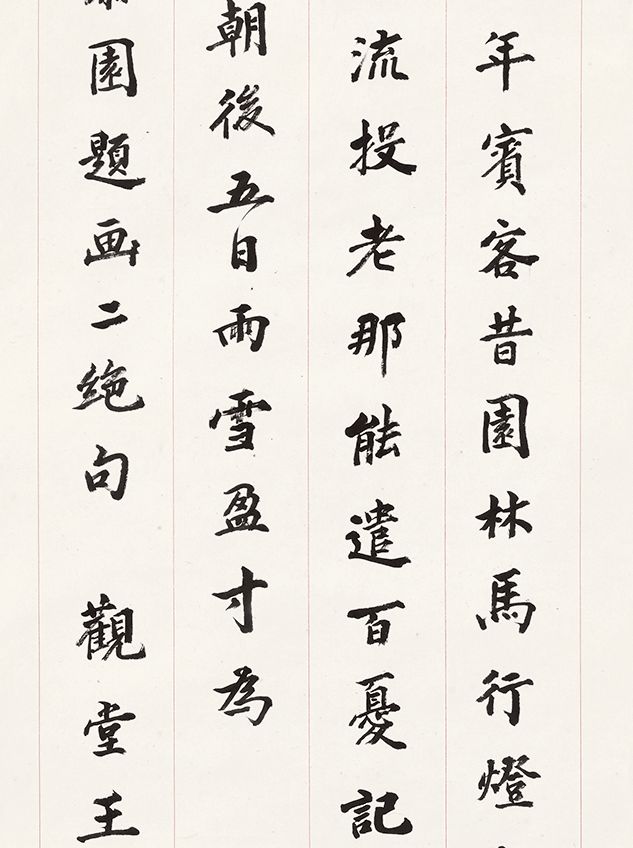 年賓客昔園林馬行燈
流投老那能遣百憂記
朝後五日雨雪盈才為
園題画二绝句 觀堂王